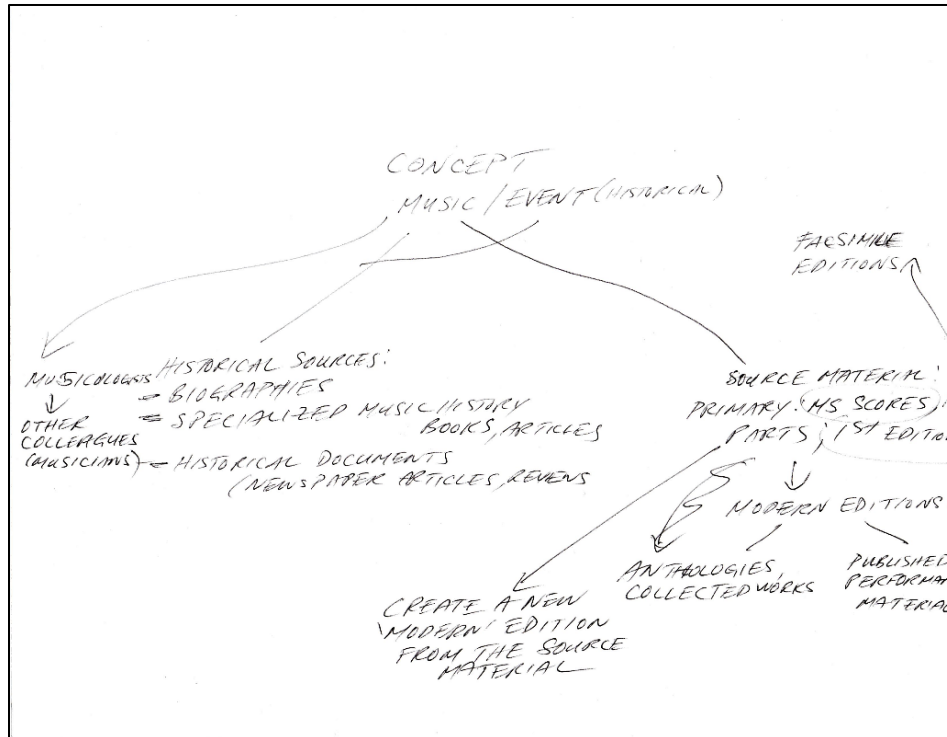 CONCEPT
MUSIC / EVENT (HISTORICAL)
FACSIMILE
EDITIONS
MUSICOLOGISTS
OTHER
COLLEAGUES
(MUSICIANS)
HISTORICAL SOURCES:
- BIOGRAPHIES
- SPECIALIZED MUSIC HISTORY
BOOKS, ARTICLES
- HISTORICAL DOCUMENTS
(NEWSPAPER ARTICLES,
SOURCE MATERIAL:
PRIMARY: MS SCORES,
PARTS; 1ST EDITION
MODERN EDITIONS
ANTHOLOGIES,
COLLECTED WORKS
PUBLISHED
PERFORMA
MATERIA
CREATE A NEW
'MODERN' EDITION
FROM THE SOURCE
MATERIAL